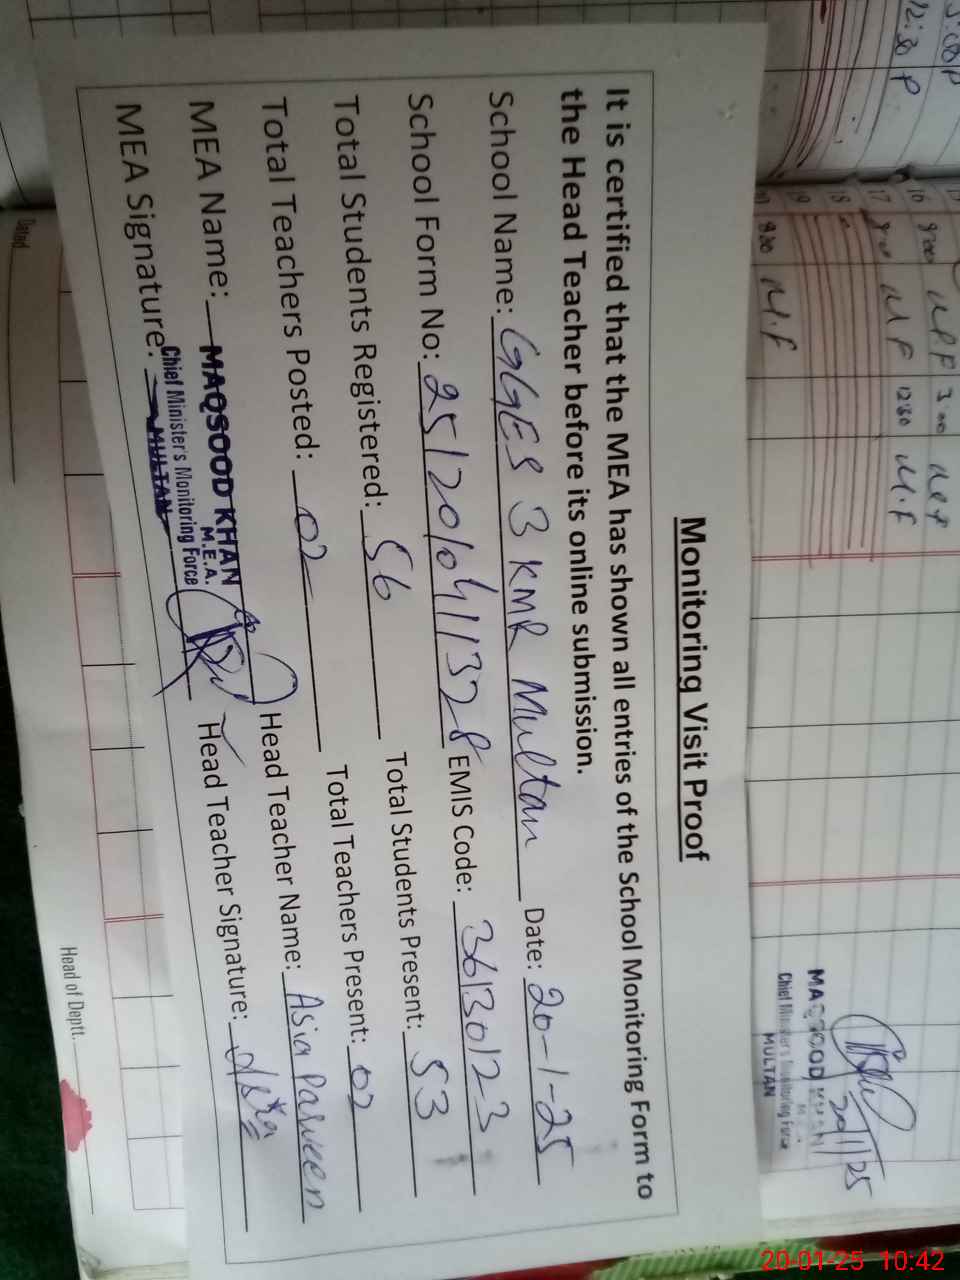 Monitoring Visit Proof
It is certified that the MEA has shown all entries of the School Monitoring Form to
the Head Teacher before its online submission.
School Name: GGES 3 KMR Multan Date: 20-1-25
School Form No: 25120104111328 EMIS Code: 36130123
Total Students Registered: 56 Total Students Present: 53
Total Teachers Posted: 02 Total Teachers Present: 02
MEA Name: MAQSOOD KHAN Head Teacher Name: Asia Parveen
M.E.A.
Chief Minister's Monitoring Force
MULTAN
MEA Signature: Head Teacher Signature: Asia
5:00 P
12:30 P
16 9:00 3:00
17 12:30 M.F
18
19
20 9:00 M.F
20/1/25
MAQSOOD KHAN
Chief Minister's Monitoring Force
MULTAN
Dated
Head of Deptt.
20-01-25 10:42